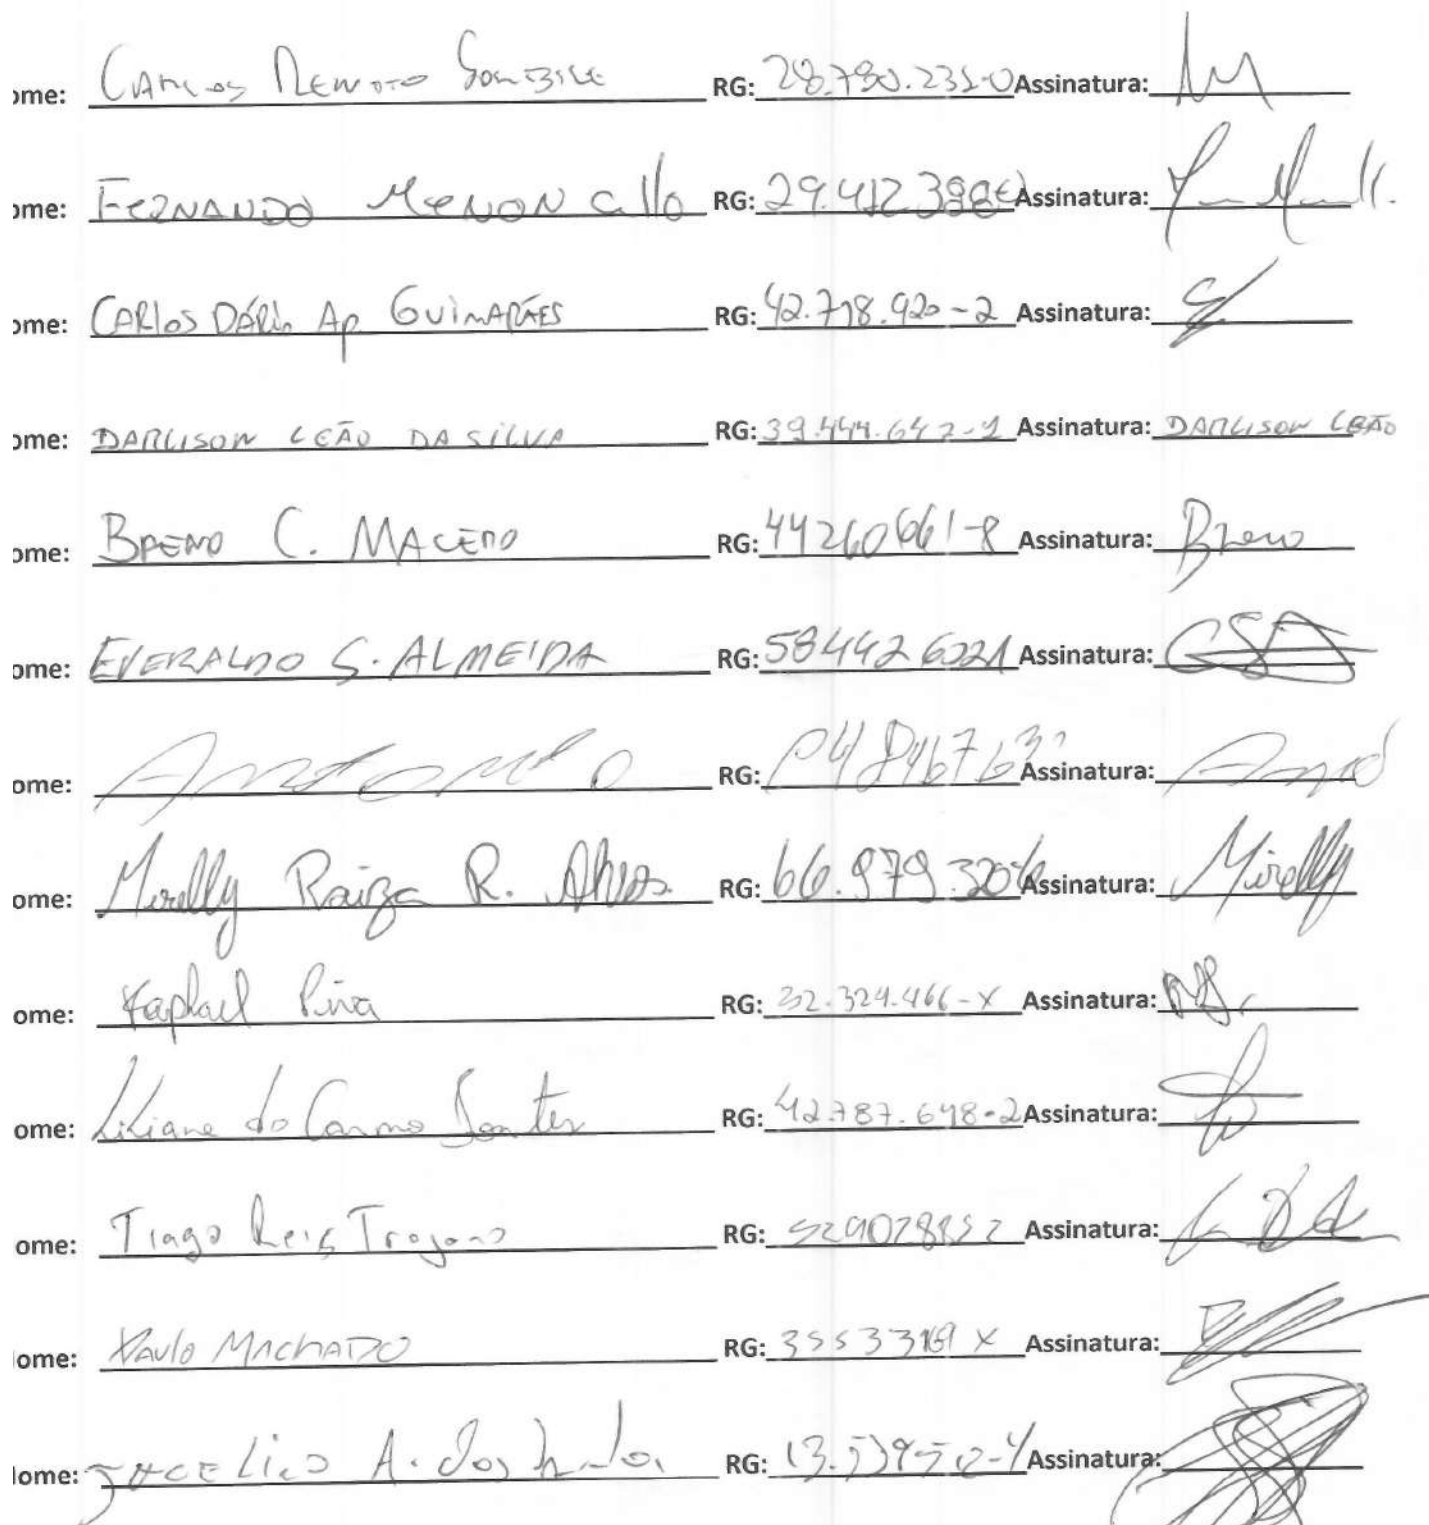 ome: Carlos Renato RG: Assinatura:
ome: FERNANDO MENON RG: 29.412.398 Assinatura:
ome: CARlos DÁRIo Ap GUIMARÃES RG: 42.718.920-2 Assinatura:
ome: DARLISON LEÃO DA SILVA RG: 39.444.647-1 Assinatura: DARLISON LEÃO
ome: BRENO C. MACEDO RG: 44260661-8 Assinatura: Breno
ome: EVERALDO S. ALMEIDA RG: 584426021 Assinatura:
ome: Antonio RG: Assinatura:
ome: Mirelly Raiza R. Alves RG: 66.979.320 Assinatura: Mirelly
ome: Raphael Piva RG: 32.324.466-X Assinatura:
ome: Liliane do Carmo RG: 42.787.648-2 Assinatura:
ome: Tiago Reis Trajano RG: Assinatura:
ome: Paulo MACHADO RG: Assinatura:
lome: A. dos RG: Assinatura: